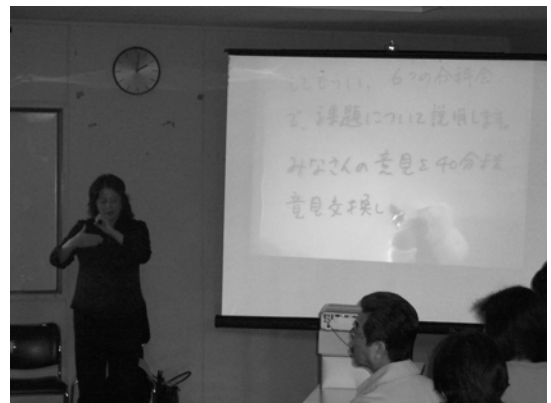 6つの分科会
で、課題について説明します。
みなさんの意見を40分程
意見交換し